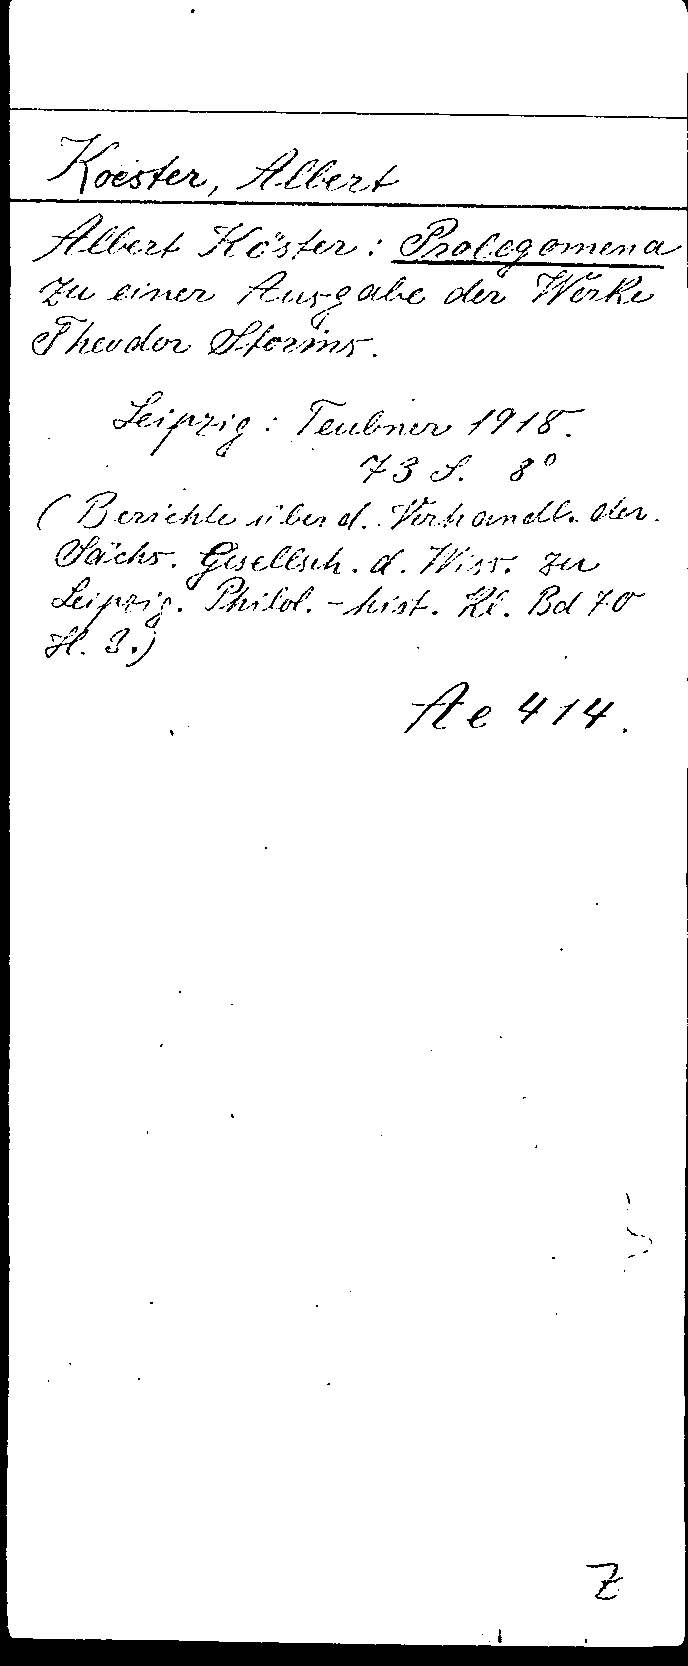 Koester, Albert
Albert Köster: Prolegomena
zu einer Ausgabe der Werke
Theodor Storms.
Leipzig: Teubner 1918.
73 S. 8°
(Berichte über d. Verhandl. der
Sächs. Gesellsch. d. Wiss. zu
Leipzig. Philol.-hist. Kl. Bd 70
H. 3.)
Ae 414.
Z